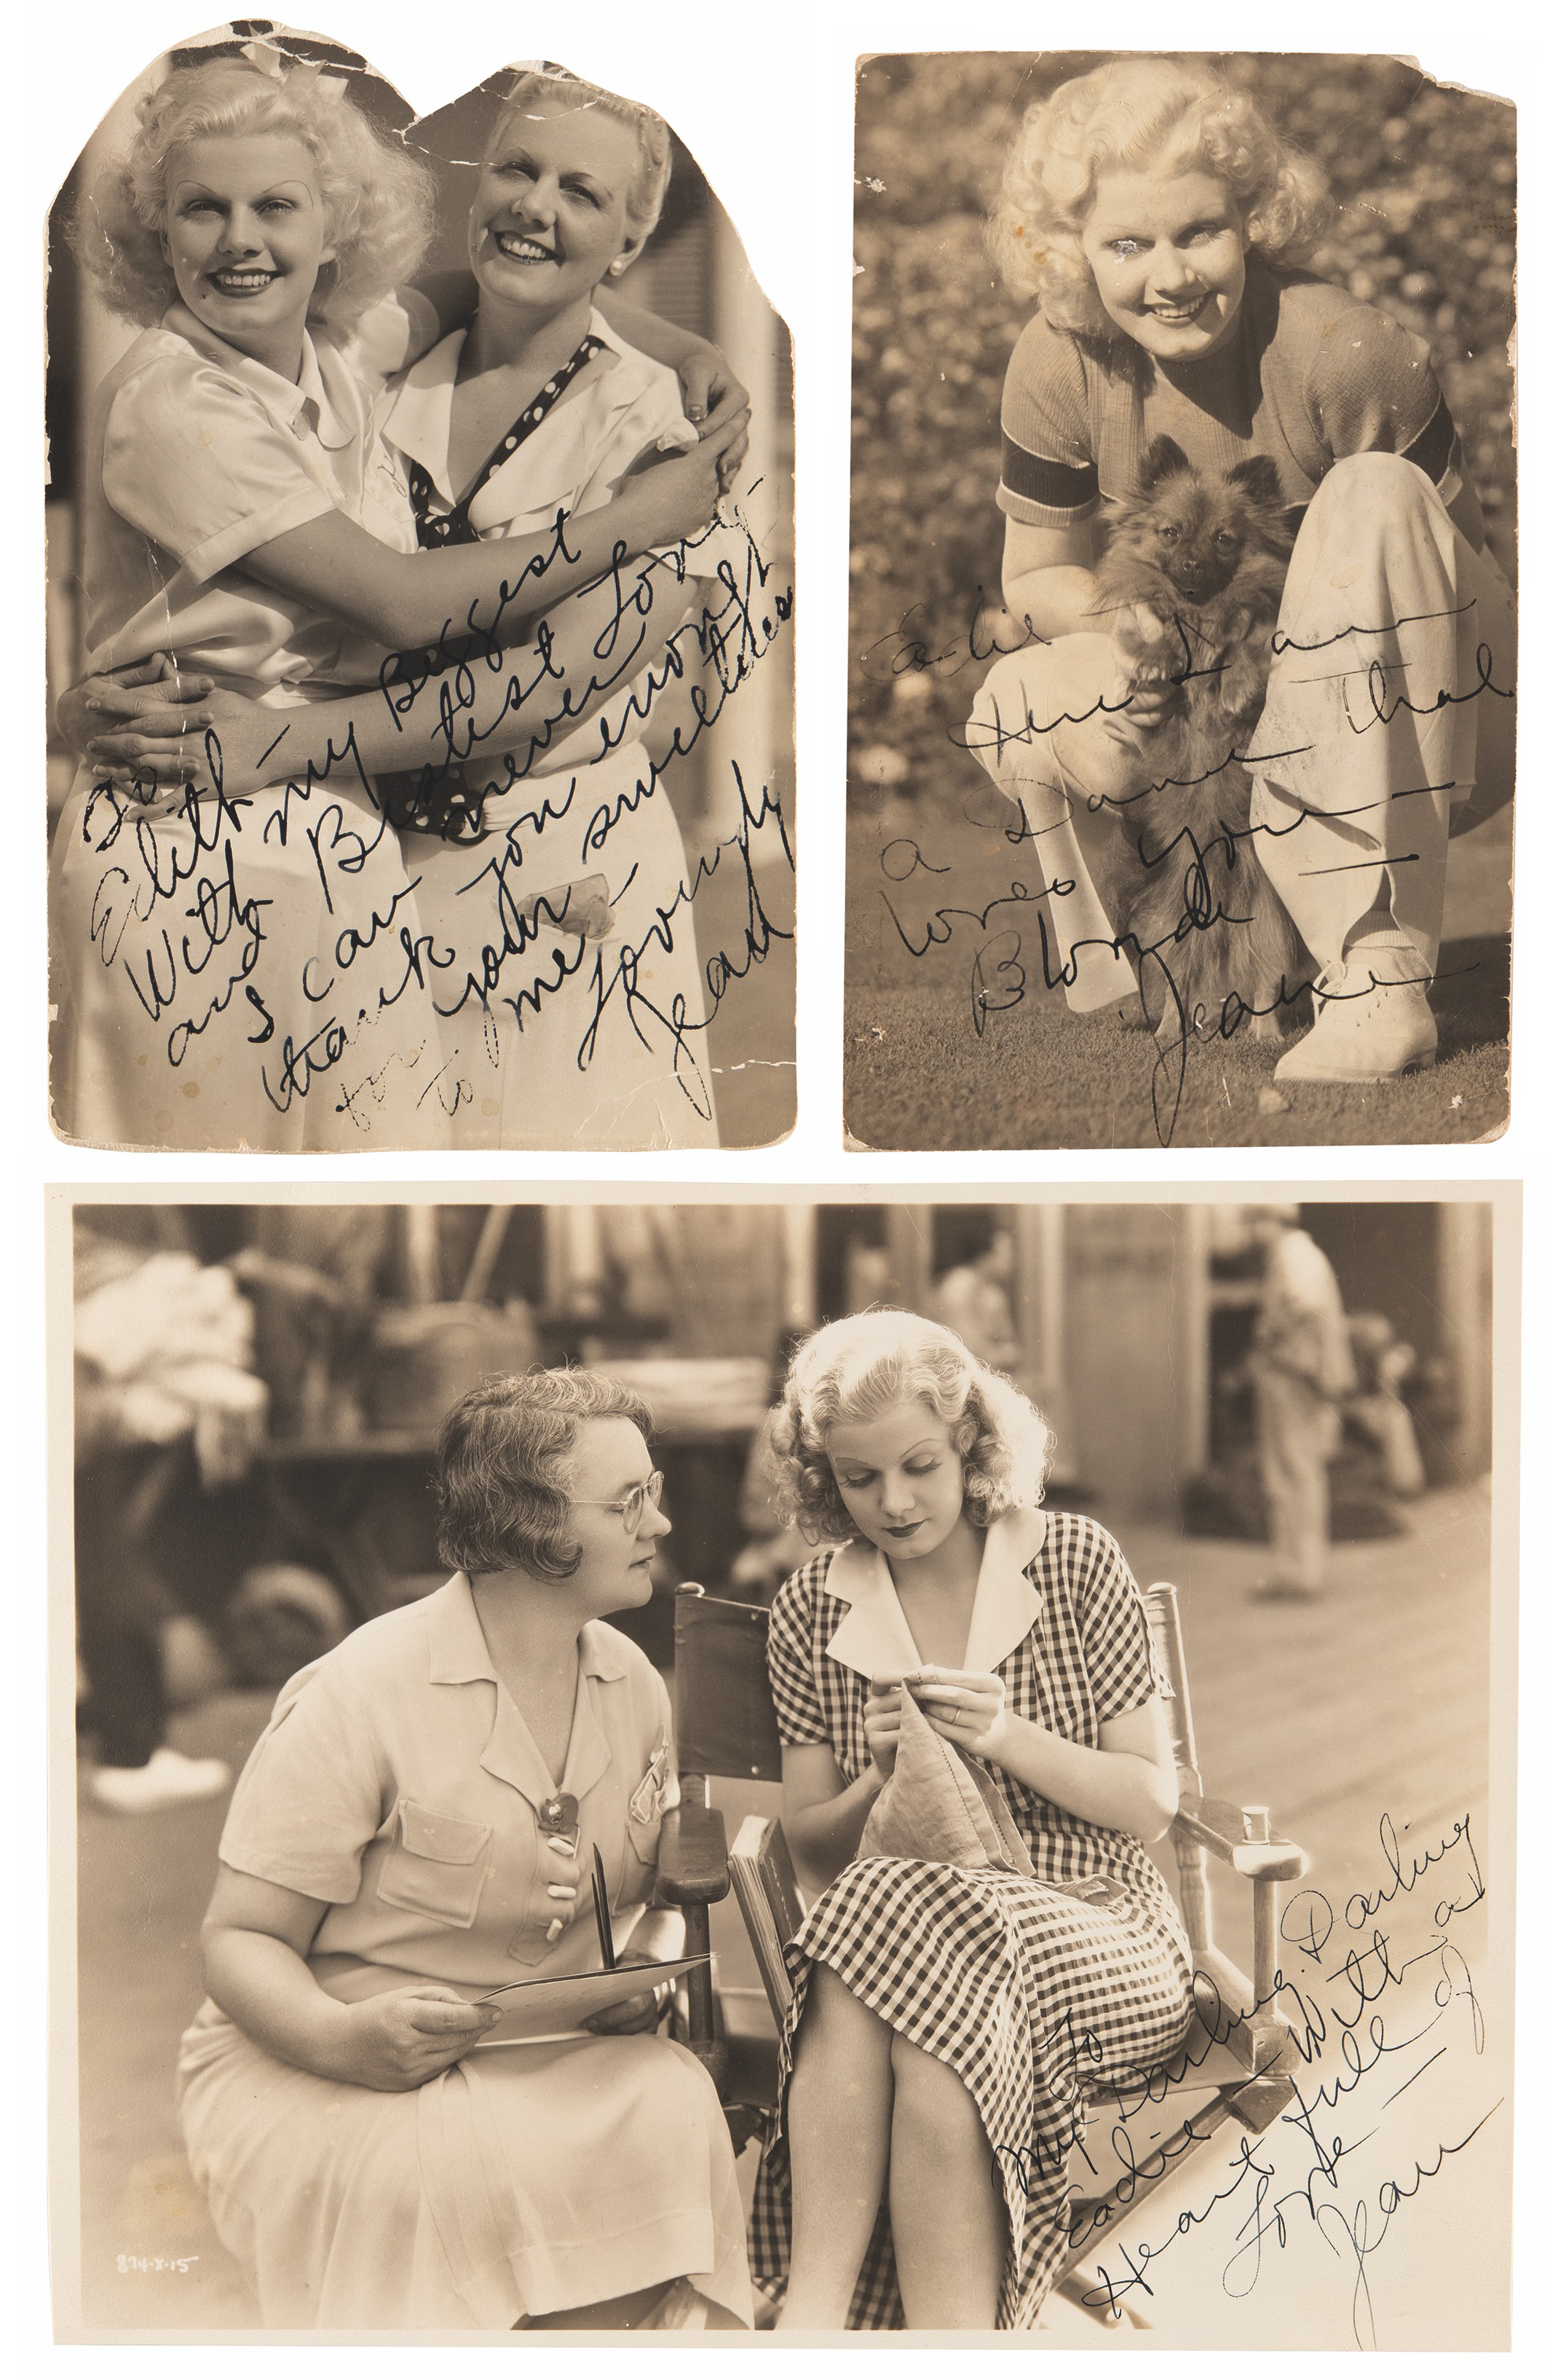 To
Edith —
With my Biggest
and Bestest Love —
I can never
thank you enough
for your sweetness
to me —
Lovingly
Jean
Eadie
Here I am
a Dame that
loves you —
Jeanie
To
My Darling, Darling
Eadie — With a
Heart full of
Love —
Jean
874-X-15